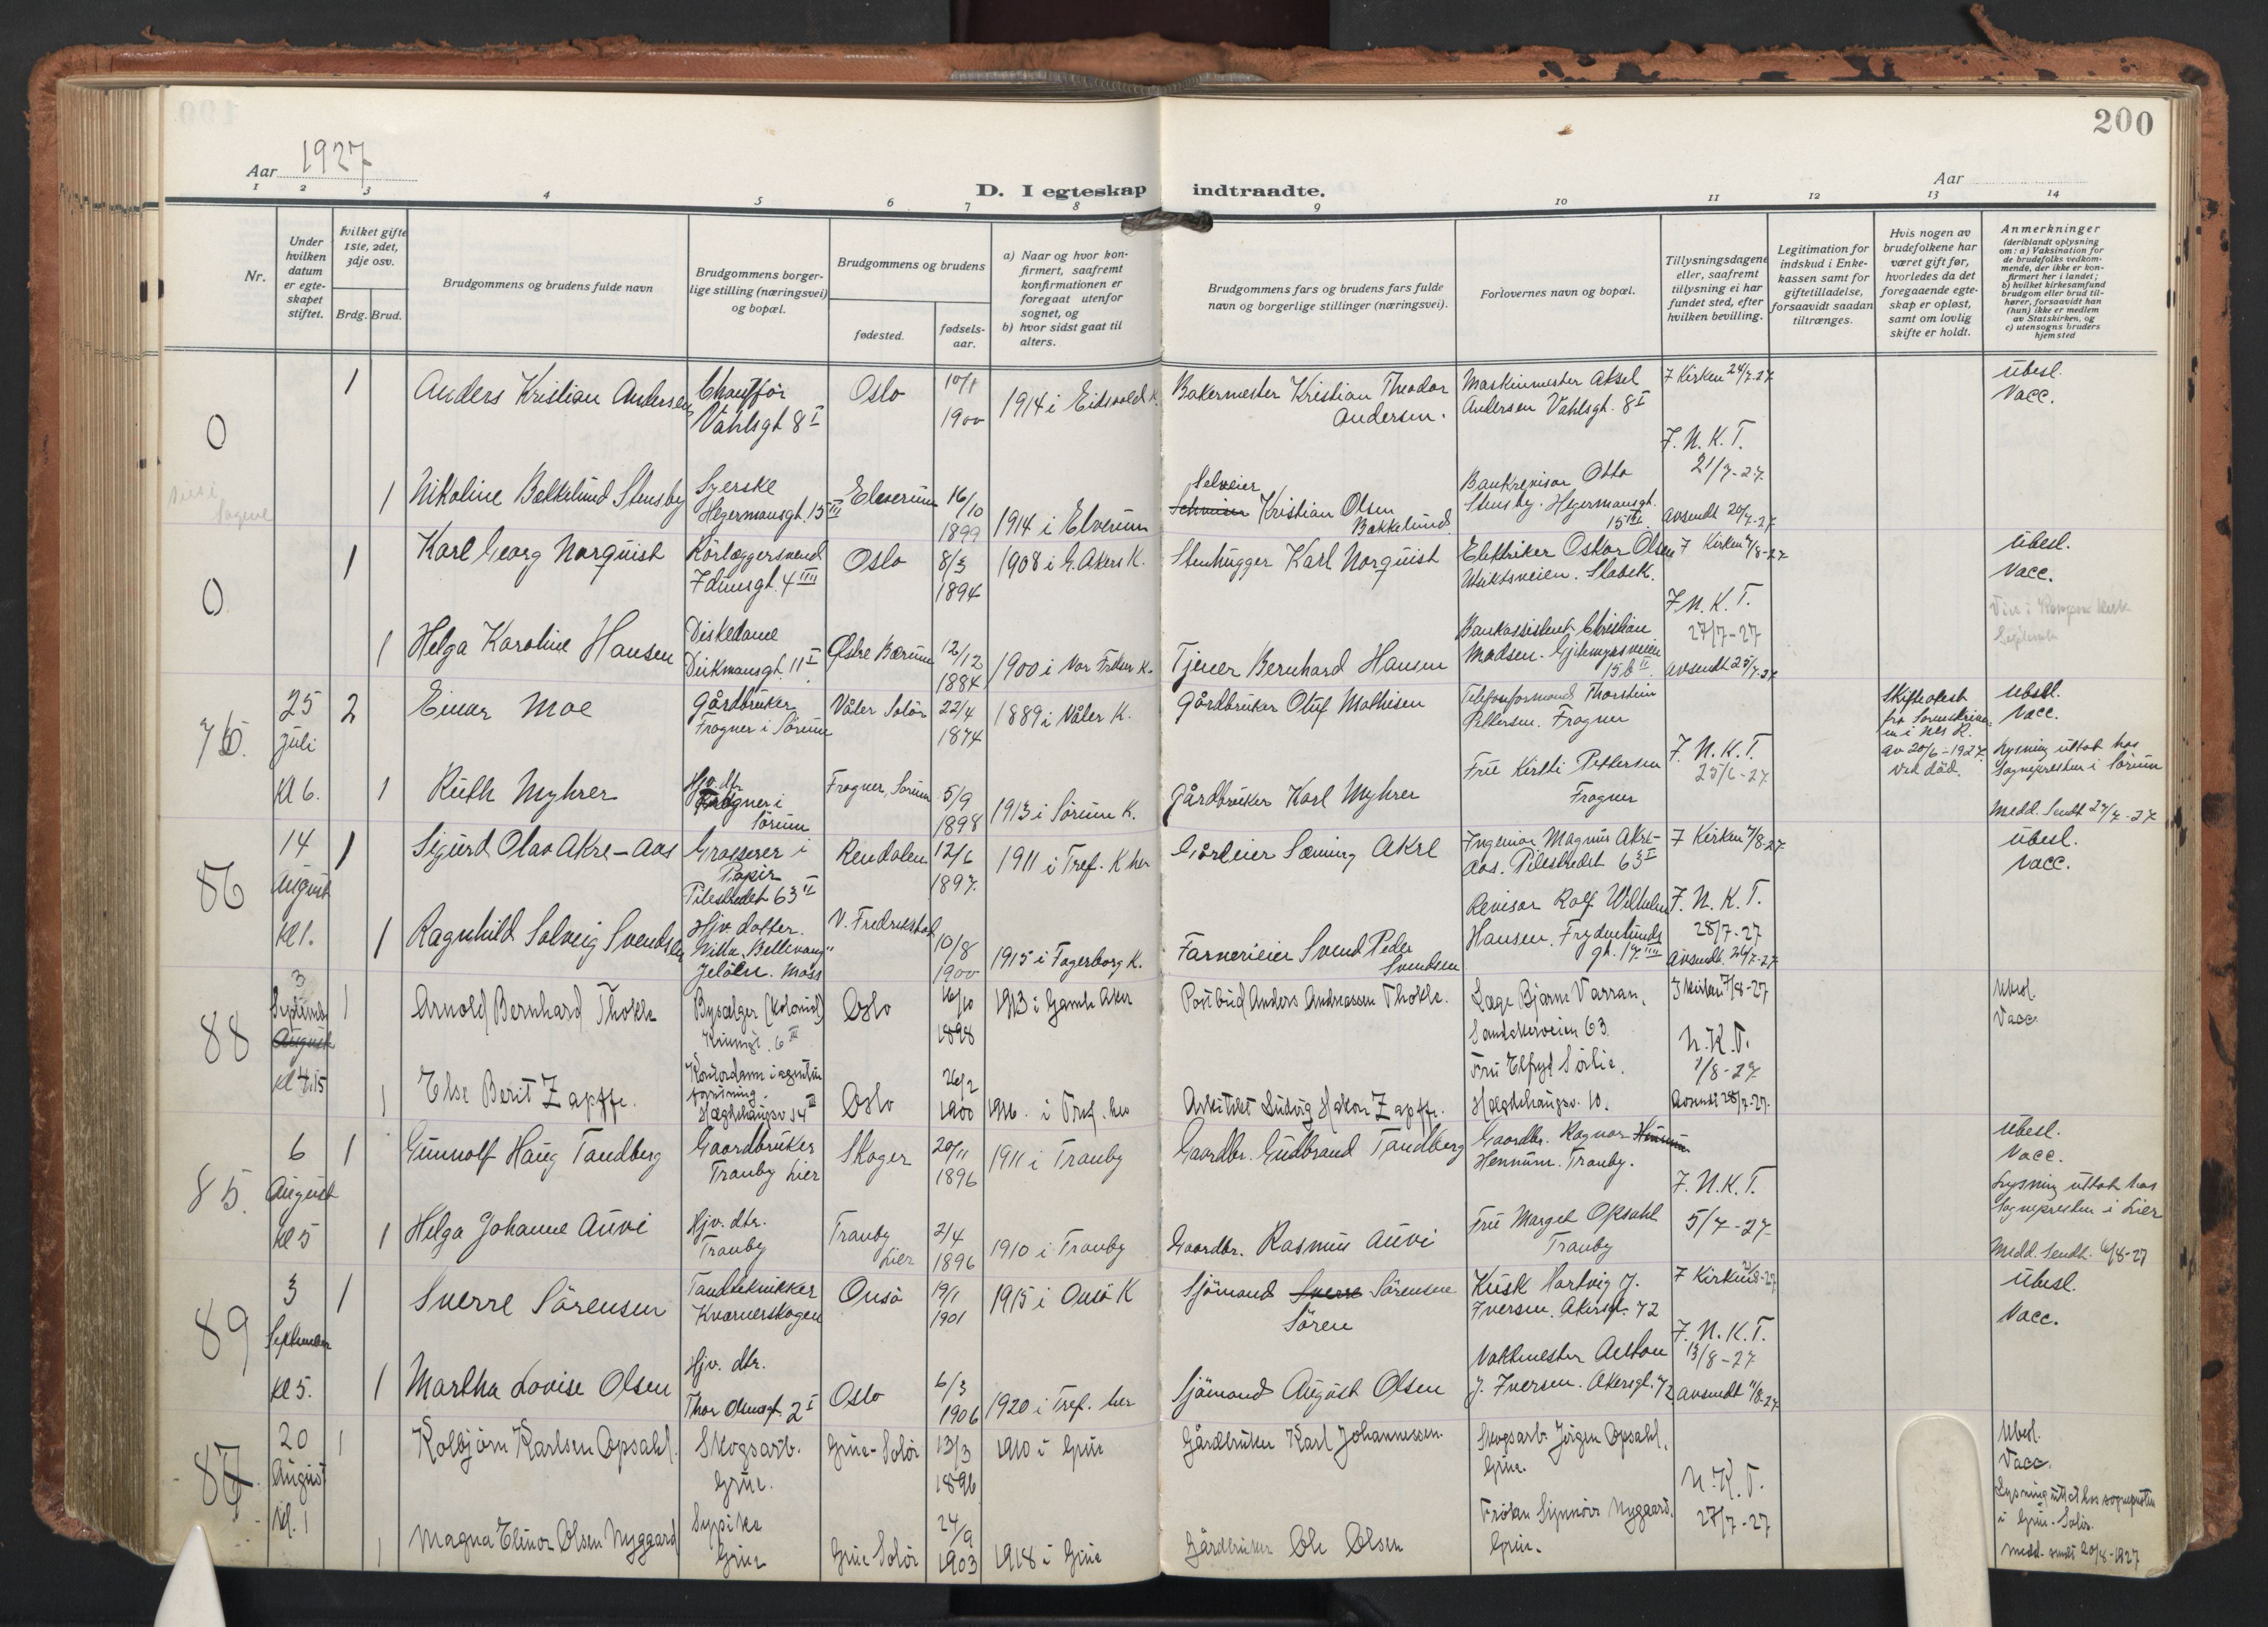 200
Aar 1927
Aar
D. I egteskap indtraadte.
1 2 3 4 5 6 7 8 9 10 11 12 13 14
Nr.
Under hvilken datum er egteskapet stiftet.
Hvilket gifte 1ste, 2det, 3dje osv.
Brdg. Brud.
Brudgommens og brudens fulde navn
Brudgommens borgerlige stilling (næringsvei) og bopæl.
Brudgommens og brudens
fødested.
fødselsaar.
a) Naar og hvor konfirmert, saafremt konfirmationen er foregaat utenfor sognet, og
b) hvor sidst gaat til alters.
Brudgommens fars og brudens fars fulde navn og borgerlige stillinger (næringsvei).
Forlovernes navn og bopæl.
Tillysningsdagene eller, saafremt tillysning ei har fundet sted, efter hvilken bevilling.
Legitimation for indskud i Enkekassen samt for giftetilladelse, forsaavidt saadan tiltrænges.
Hvis nogen av brudefolkene har været gift før, hvorledes da det foregaaende egteskap er opløst, samt om lovlig skifte er holdt.
Anmerkninger
(deriblandt oplysning om: a) Vaksination for de brudefolks vedkommende, der ikke er konfirmert her i landet; b) hvilket kirkesamfund brudgom eller brud tilhører, forsaavidt han (hun) ikke er medlem av Statskirken, og c) utensogns bruders hjemsted
0
1 Anders Kristian Andersen Chauffør Vahlsgt 8 I Oslo 10/1 1900 1914 i Eidsvold K. Bakermester Kristian Theodor Andersen. Maskinmester Aksel Andersen Vahlsgt. 8 I I Kirken 24/7-27 Ubesl. Vacc.
F. N. K. T. 21/7-27
1 Nikoline Bækkelund Stensby Syerske Hegermansgt. 15 III Elverum 16/10 1899 1914 i Elverum Selveier Kristian Olsen Bakkelund Bankrevisor Otto Stensby. Hegermansgt. 15 III avsendt 20/7-27
0
1 Karl Georg Norquist Rørlæggersvend Idunsgt. 4 IIII Oslo 8/3 1894 1908 i G. Akers K. Stenhugger Karl Norquist Elektriker Oskar Olsen Utsiktsveien. Stabek. I Kirken 7/8-27 Ubesl. Vacc.
F. N. K. T. 27/7-27
1 Helga Karoline Hansen Diskedame Dirkmansgt. 11 I Østre Bærum 12/12 1884 1900 i Vor Frelsers K. Tjener Bernhard Hansen Bankassistent Christian Madsen. Gjitemyrsveien 15 b II avsendt 25/7-27
76. 25 Juli Kl 6.
2 Einar Moe Gårdbruker Frogner i Sørum Våler Solør 22/4 1874 1889 i Våler K. Gårdbruker Oluf Mathisen Telefonformand Thorstein Pettersen. Frogner Skifteattest fra Sorenskriveren i Nes R. av 20/6-1927. Ved død. Ubesl. Vacc.
F. N. K. T. 25/6-27
Lysning uttat hos Sognepresten i Sørum
1 Ruth Myhrer Hjv. dtr. Frogner i Sørum Frogner, Sørum 5/9 1898 1913 i Sørum K. Gårdbruker Karl Myhrer Frue Kirsti Pettersen Frogner Medd. Sendt 27/7-27
86 14 August Kl 1.
1 Sigurd Olav Akre-Aas Grosserer i Papir Pilestredet 63 II Rendalen 12/6 1897. 1911 i Tref. K her Gårdeier Sæming Akre Ingeniør Magnus Akre-Aas. Pilestredet 63 I I Kirken 7/8-27 Ubesl. Vacc.
F. N. K. T. 28/7-27
1 Ragnhild Solveig Svendsen Hjv. datter. Villa "Bellevang" Jeløen. Moss V. Fredrikstad 10/8 1900 1915 i Fagerborg K. Farverieier Svend Peder Svendsen Revisor Rolf Wilhelm Hansen. Frydenlundsgt. 17 IIII avsendt. 26/7-27
88 3 September August Kl 4.15
1 Arnold Bernhard Thokle Bysælger (kolonial) Oslo 16/10 1898 1913 i Gamle Aker Postbud Anders Andreassen Thokle. Læge Bjarne Varran, Sandakerveien 63. I kirken 7/8-27 Ubesl. Vacc.
N. K. T. 1/8-27
1 Else Berit Zapffe. Kontordame i agenturforretning. Hægdehaugsv. 14 III Oslo 26/2 1900 1916. i Tref. her Arkitekt Ludvig Hakon Zapffe. Fru Elfryd Sørlie, Hægdehaugsv. 10. Avsendt 28/7-27.
85. 6 August Kl 5
1 Gunnolf Haug Tandberg Gaardbruker Tranby Lier Skoger 20/11 1896 1911 i Tranby Gaardbr. Gudbrand Tandberg Gaardbr. Ragnar Hennum. Tranby. Ubesl. Vacc.
F. N. K. T. 5/7-27
Lysning uttat hos Sognepresten i Lier
1 Helga Johanne Auvi Hjv. dtr. Tranby Tranby Lier 2/4 1896 1910 i Tranby Gaardbr. Rasmus Auvi Frue Margit Opsahl Tranby Medd. Sendt. 6/8-27
89 3 September Kl 5.
1 Sverre Sørensen Tandtekniker Kværnerskogen Onsø 19/1 1901 1915 i Onsø K Sjømand Sverre Sørensen Søren Kusk Hartvig J. Iversen. Akersgt. 72 I Kirken Ubesl. Vacc.
F. N. K. T. 13/8-27
1 Martha Lovise Olsen Hjv. dtr. Thor Olsensgt. 2 I Oslo 6/3 1906 1920 i Tref. her Sjømand August Olsen Vaktmester Anton J. Iversen. Akersgt. 72 avsendt 11/8-27
87 20 August Kl. 1
1 Kolbjørn Karlsen Opsahl. Skogsarb. Grue. Grue-Solør 13/3 1896 1910 i Grue Gårdbruker Karl Johannessen. Skogsarb. Jørgen Opsahl, Grue. Ubesl. Vacc.
N. K. T. 27/7-27
Lysning uttat hos sognepresten i Grue-Solør.
1 Magna Elinor Olsen Nyggaard Sypike Grue Grue-Solør 24/9 1903 1918 i Grue Gårdbruker Ole Olsen Frøken Synnøve Nyggaard. Grue. Medd. sendt 20/8-1927